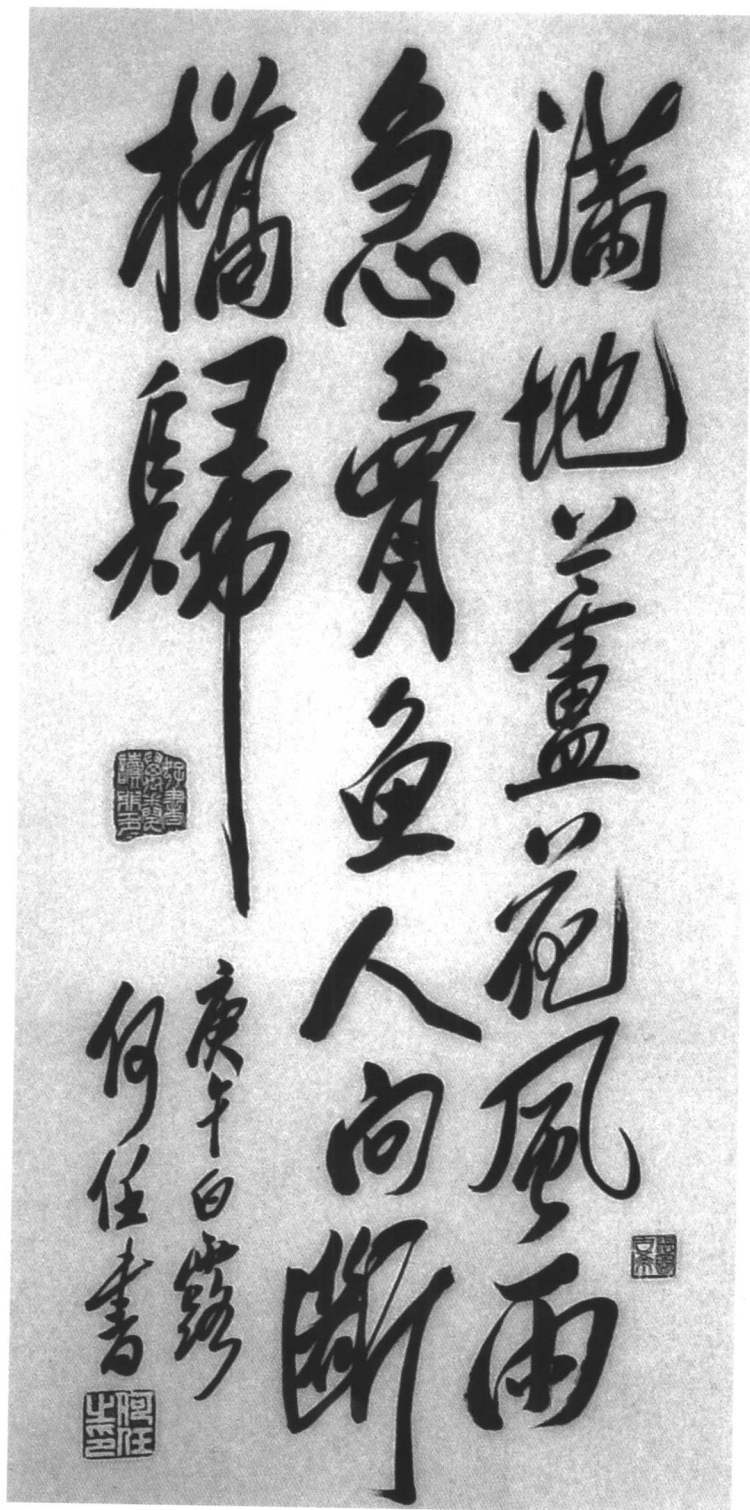 滿地蘆花風雨
急賣鱼人向斷
橋歸
庚午白露
何任書
何任之印